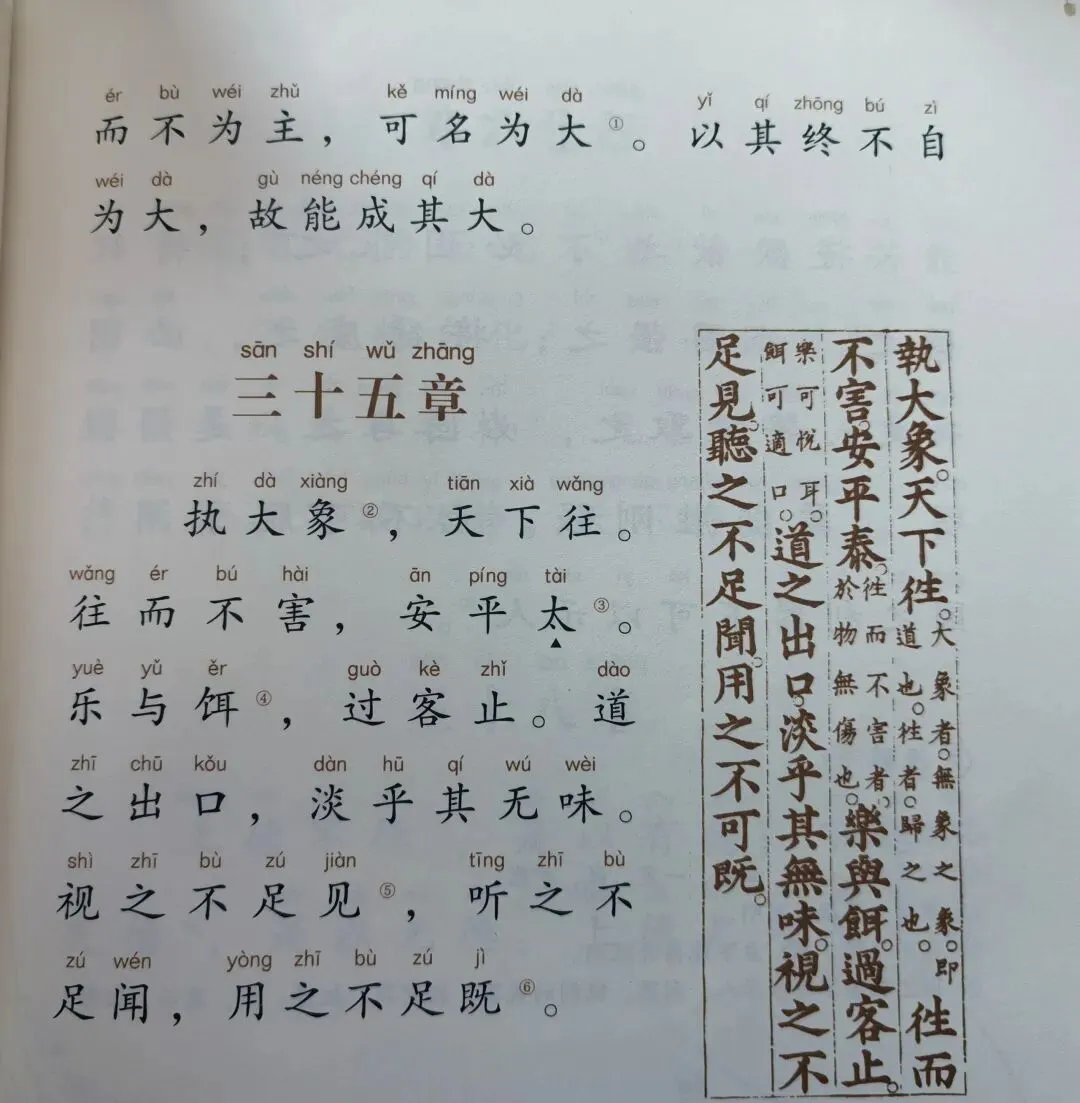 ér bù wéi zhǔ kě míng wéi dà yǐ qí zhōng bú zì
而不为主，可名为大①。以其终不自
wéi dà gù néng chéng qí dà
为大，故能成其大。
sān shí wǔ zhāng
三十五章
zhí dà xiàng tiān xià wǎng
执大象②，天下往。
wǎng ér bú hài ān píng tài
往而不害，安平太③。
▲
yuè yǔ ěr guò kè zhǐ dào
乐与饵④，过客止。道
zhī chū kǒu dàn hū qí wú wèi
之出口，淡乎其无味。
shì zhī bù zú jiàn tīng zhī bù
视之不足见⑤，听之不
zú wén yòng zhī bù zú jì
足闻，用之不足既⑥。
執大象。天下徃。大象者。無象之象。即道也。徃者。歸之也。徃而
不害。安平泰。徃而不害者、於物無傷也。樂與餌。過客止。
樂可悅耳。餌可適口。道之出口。淡乎其無味。視之不
足見。聽之不足聞。用之不可既。